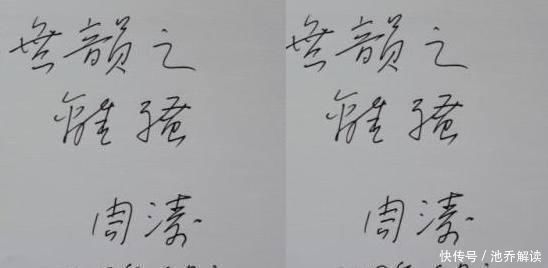 無韻之
離骚
周涛
無韻之
離骚
周涛
快传号／池乔解读